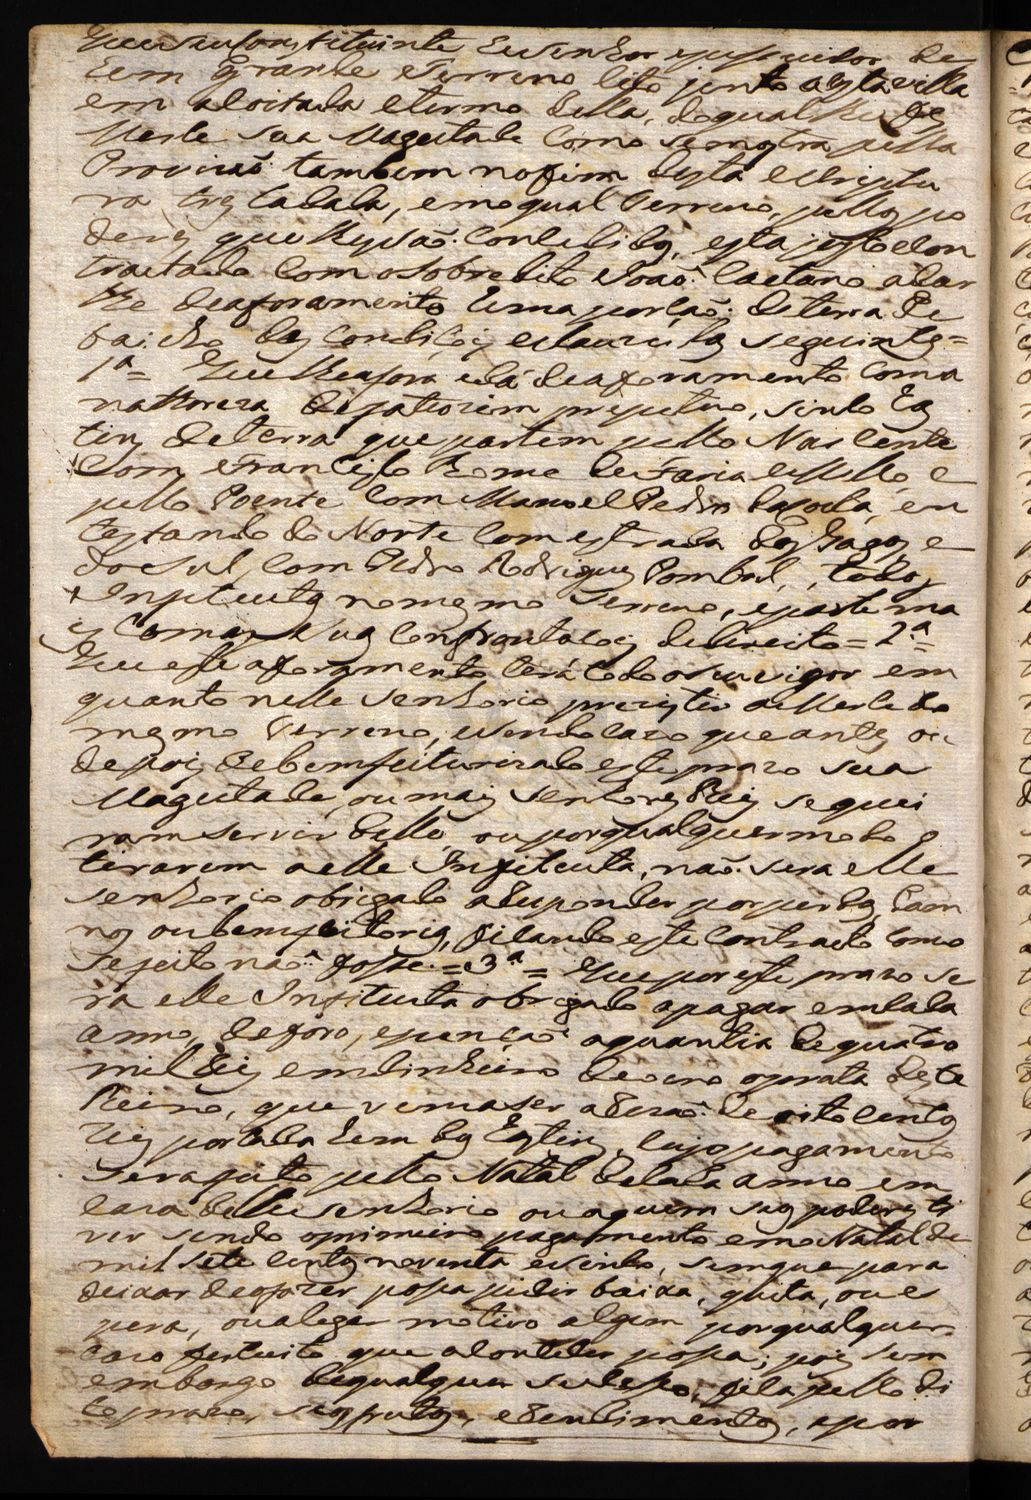 Que seu Constituinte he senhor e pessuidor de
hum grande Terreno cito junto a esta villa
em a Coitada e termo della, do qual lhe fes
Merse sua Magestade como se mostra pella
Provizaõ tambem no fim desta escreptu
ra tresladada, e no qual Terreno, pellos po
deres que lhe saõ concedidos, esta justo e con
tractado com o sobredito Joaõ Caetano a dar
lhe de aforamento huma porçaõ de terra de
baicho das condiçois e clauzullas seguintes =
1ª = Que lhe afora e dá de aforamento com a
nattureza de fateozim prepetuo, sinco has
tins de terra que partem pello Nascente
com Francisco Home de Faria e Mello, e
pello Poente com Manoel Pedro da Costa, en
testando do Norte com estrada dos Gagos, e
do Sul, com Pedro Rodrigues Pombal, todos
Infiteutas no mesmo Terreno, e parte ma
is Com as suas Confrontaçois de direito = 2.ª =
Que este aforamento terá todo o seu vigor em
quanto nelle senhorio prezistir a Merse do
mesmo Terreno, e sendo cazo que antes ou
depois de bemfeiturizado este prazo sua
Magestade, ou mais senhores Reis se quei
ram servir delle, ou por qualquer modo o
tirarem a elle Infiteuta, naõ sera elle
senhorio obrigado a responder por perdas, Dam
nos ou bemfeitorias, ficando este contracto como
se feito naõ fosse. = 3.ª = Que por este prazo se
rá elle Infiteuta obrigado a pagar em cada
anno, de foro, e pençaõ a quantia de quatro
mil Reis em dinheiro de ouro ou prata deste
Reino, que vem a ser a Rezaõ de oito centos
Reis por cada hum dos hastins, cujo pagamento
sera feito pello Natal de cada anno em
caza delle senhorio ou a quem seus poderes ti
ver sendo o primeiro pagamento em o Natal de
mil sete centos noventa e sinco, sem que para
deixar de o fazer possa pidir baixa, quita, ou es
pera, ou alegar motivo algum por qualquer
cazo fortuito que acontecer possa; pois sem
embargo de qualquer sucesso, fica pello di
to prazo, seus frutos, e Rendimentos, e por